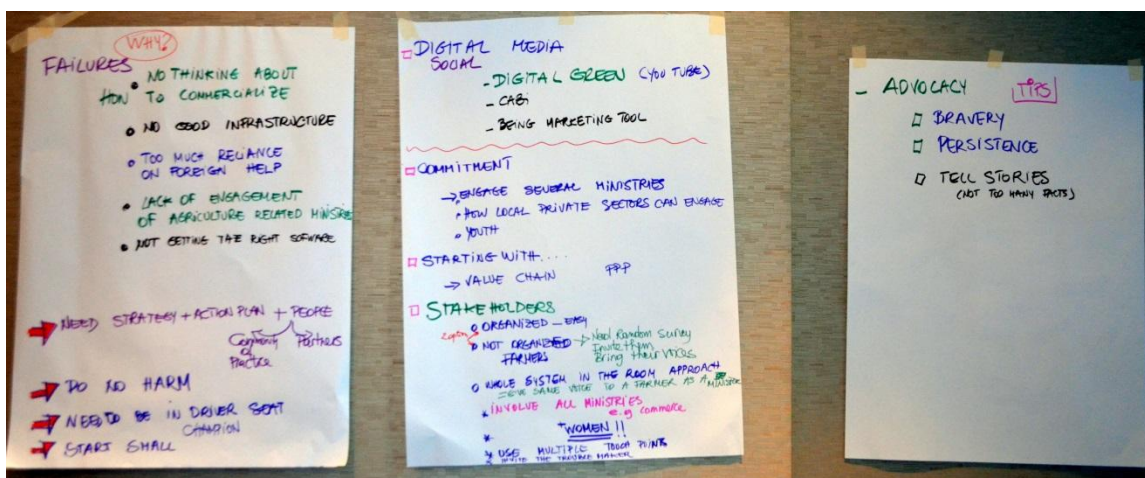 WHY?
FAILURES
• NO THINKING ABOUT
HOW TO COMMERCIALIZE
• NO GOOD INFRASTRUCTURE
• TOO MUCH RELIANCE
ON FOREIGN HELP
• LACK OF ENGAGEMENT
OF AGRICULTURE RELATED
• NOT GETTING THE RIGHT SOFWARE
NEED STRATEGY + ACTION PLAN + PEOPLE
Community Partners
of
Practice
DO NO HARM
NEED TO BE IN DRIVER SEAT
CHAMPION
START SMALL
DIGITAL MEDIA
SOCIAL
- DIGITAL GREEN (YOU TUBE)
- CABi
- BEING MARKETING TOOL
COMMITMENT
→ ENGAGE SEVERAL MINISTRIES
• HOW LOCAL PRIVATE SECTORS CAN ENGAGE
• YOUTH
STARTING WITH....
→ VALUE CHAIN PPP
STAKEHOLDERS
ORGANIZED - EASY
NOT ORGANIZED → Need Random Survey
FARMERS Invite them
Bring their VOICES
WHOLE SYSTEM IN THE ROOM APPROACH
= GIVE SAME VOICE TO A FARMER AS A MINISTER
* INVOLVE ALL MINISTRIES
e.g commerce
* WOMEN !!
*
* USE MULTIPLE TOUCH POINTS
INVITE THE TROUBLE MAKER
- ADVOCACY TIPS
BRAVERY
PERSISTENCE
TELL STORIES
(NOT TOO MANY FACTS)